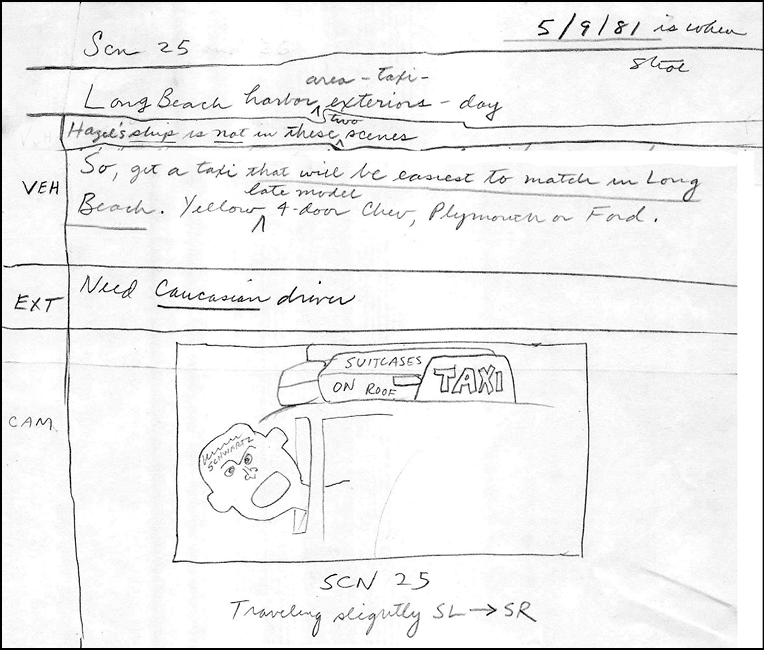 5/9/81 is when
Scn 25
shot
area - taxi -
Long Beach harbor ^ exteriors - day
two
Hazel's ship is not in these ^ scenes
VEH
So, get a taxi that will be easiest to match in Long
late model
Beach. Yellow ^ 4-door Chev, Plymouth or Ford.
EXT
Need Caucasian driver
CAM
SUITCASES
ON ROOF
TAXI
SCHWARTZ
SCN 25
Traveling slightly SL → SR